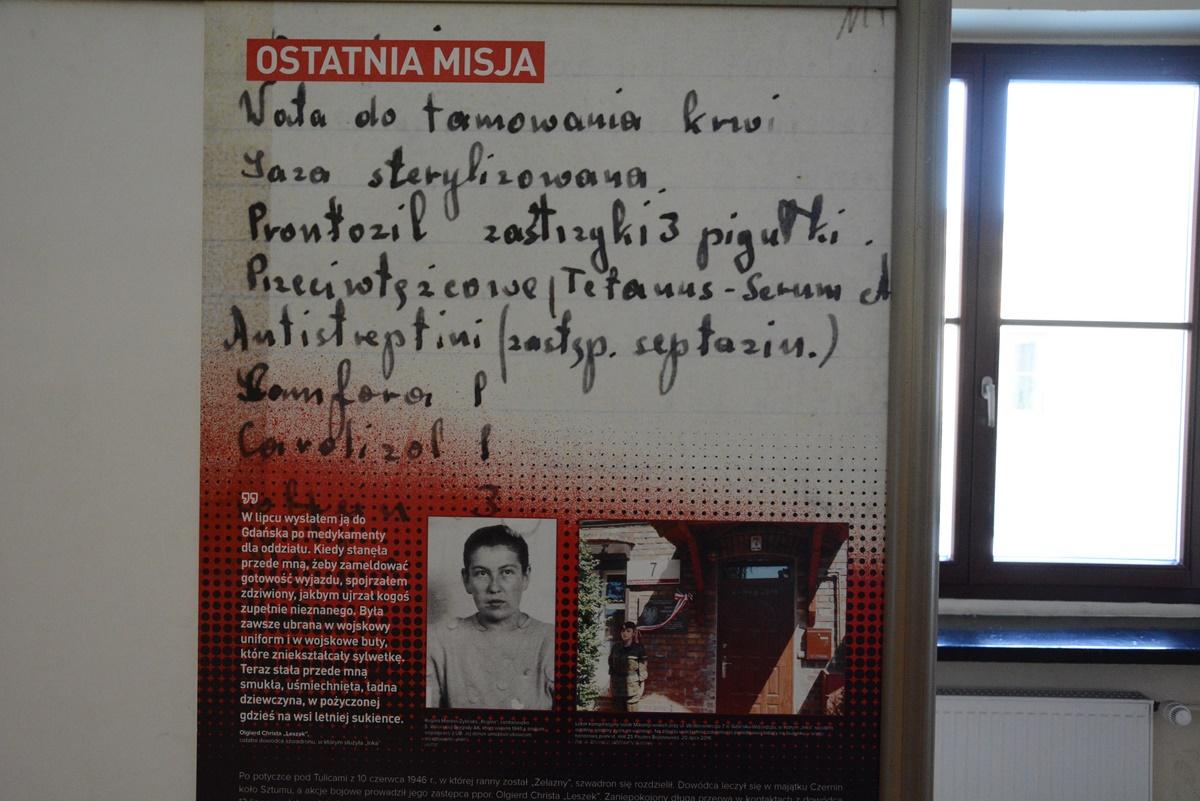 OSTATNIA MISJA
Wata do tamowania krwi
Gaza sterylizowana.
Prontozil zastrzyki 3 pigułki.
Przeciwtężcowe/Tetanus-Serum A
Antistreptini (zastęp. septazin.)
Kamfora 1
Cardizol 1
3
W lipcu wysłałem ją do
Gdańska po medykamenty
dla oddziału. Kiedy stanęła
przede mną, żeby zameldować
gotowość wyjazdu, spojrzałem
zdziwiony, jakbym ujrzał kogoś
zupełnie nieznanego. Była
zawsze ubrana w wojskowy
uniform i w wojskowe buty,
które zniekształcały sylwetkę.
Teraz stała przede mną
smukła, uśmiechnięta, ładna
dziewczyna, w pożyczonej
gdzieś na wsi letniej sukience.
Olgierd Christa „Leszek",
ostatni dowódca szwadronu, w którym służyła „Inka"
7
Po potyczce pod Tulicami z 10 czerwca 1946 r., w której ranny został „Żelazny", szwadron się rozdzielił. Dowódca leczył się w majątku Czernin
koło Sztumu, a akcje bojowe prowadził jego zastępca ppor. Olgierd Christa „Leszek". Zaniepokojony długą przerwą w kontaktach z dowódcą